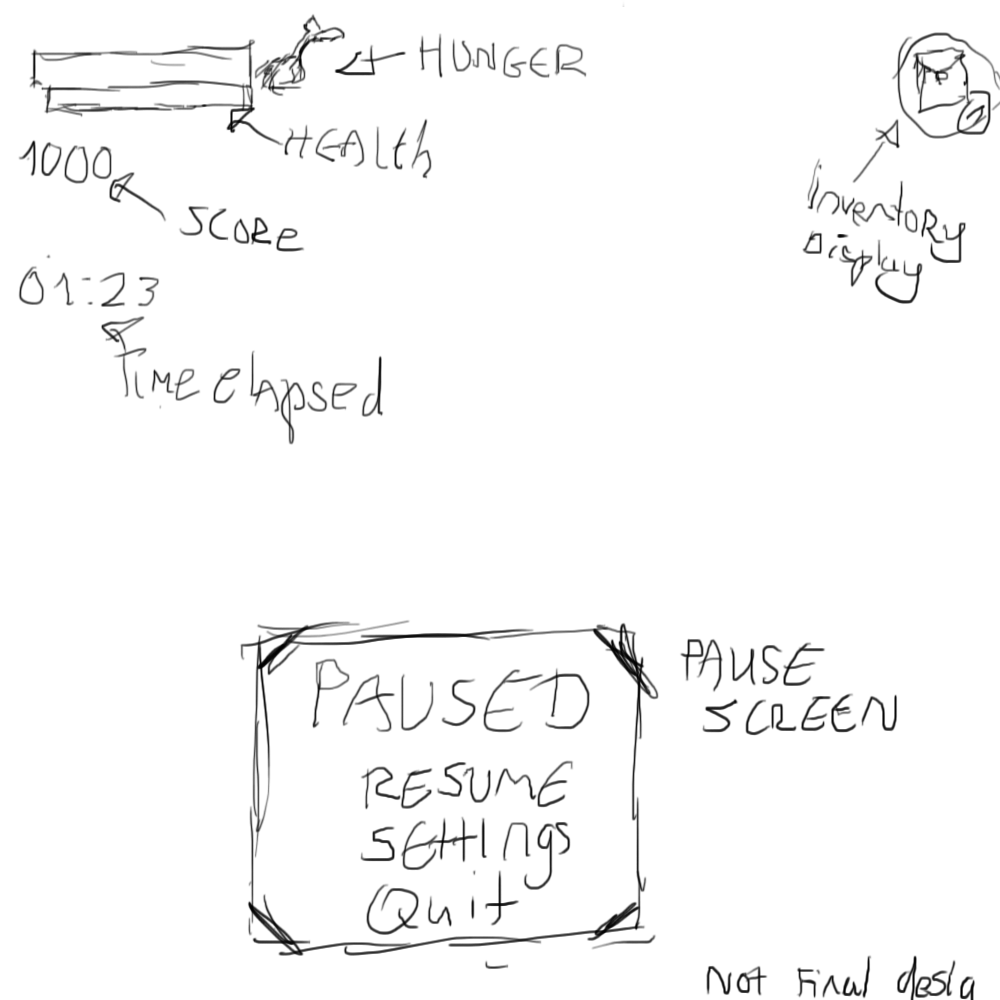 HUNGER
HEALth
1000
SCORE
01:23
Time elapsed
Inventory
Display
PAUSED
RESUME
Settings
Quit
PAUSE
SCREEN
Not Final desig